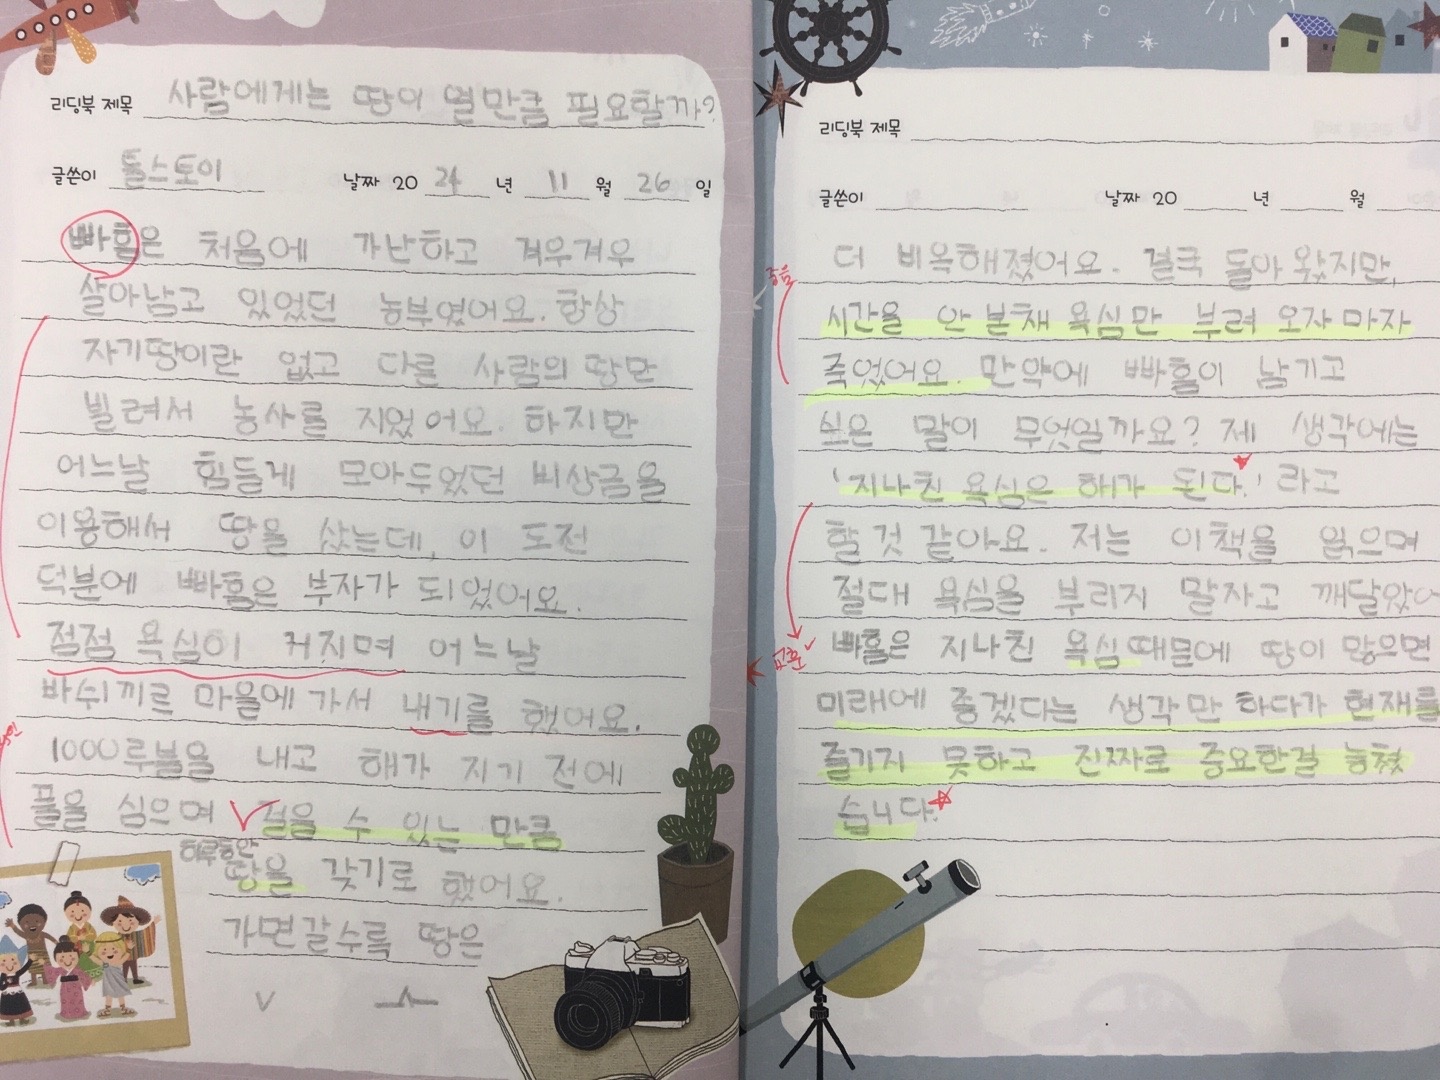 리딩북 제목 사람에게는 땅이 얼만큼 필요할까?
글쓴이 톨스토이 날짜 20 24 년 11 월 26 일
빠홈은 처음에 가난하고 겨우겨우
살아남고 있었던 농부였어요. 항상
자기땅이란 없고 다른 사람의 땅만
빌려서 농사를 지었어요. 하지만
어느날 힘들게 모아두었던 비상금을
이용해서 땅을 샀는데, 이 도전
덕분에 빠홈은 부자가 되었어요.
점점 욕심이 커지며 어느날
바쉬끼르 마을에 가서 내기를 했어요.
1000루블을 내고 해가 지기 전에
풀을 심으며 걸을 수 있는 만큼
하루동안
땅을 갖기로 했어요.
가면갈수록 땅은
리딩북 제목
글쓴이 날짜 20 년 월
더 비옥해졌어요. 결국 돌아왔지만,
시간을 안 본채 욕심만 부려 오자마자
죽었어요. 만약에 빠홈이 남기고
싶은 말이 무엇일까요? 제 생각에는
'지나친 욕심은 해가 된다.' 라고
할 것 같아요. 저는 이책을 읽으며
절대 욕심을 부리지 말자고 깨달았어
교훈 빠홈은 지나친 욕심 때문에 땅이 많으면
미래에 좋겠다는 생각만 하다가 현재를
즐기지 못하고 진짜로 중요한걸 놓쳤
습니다.